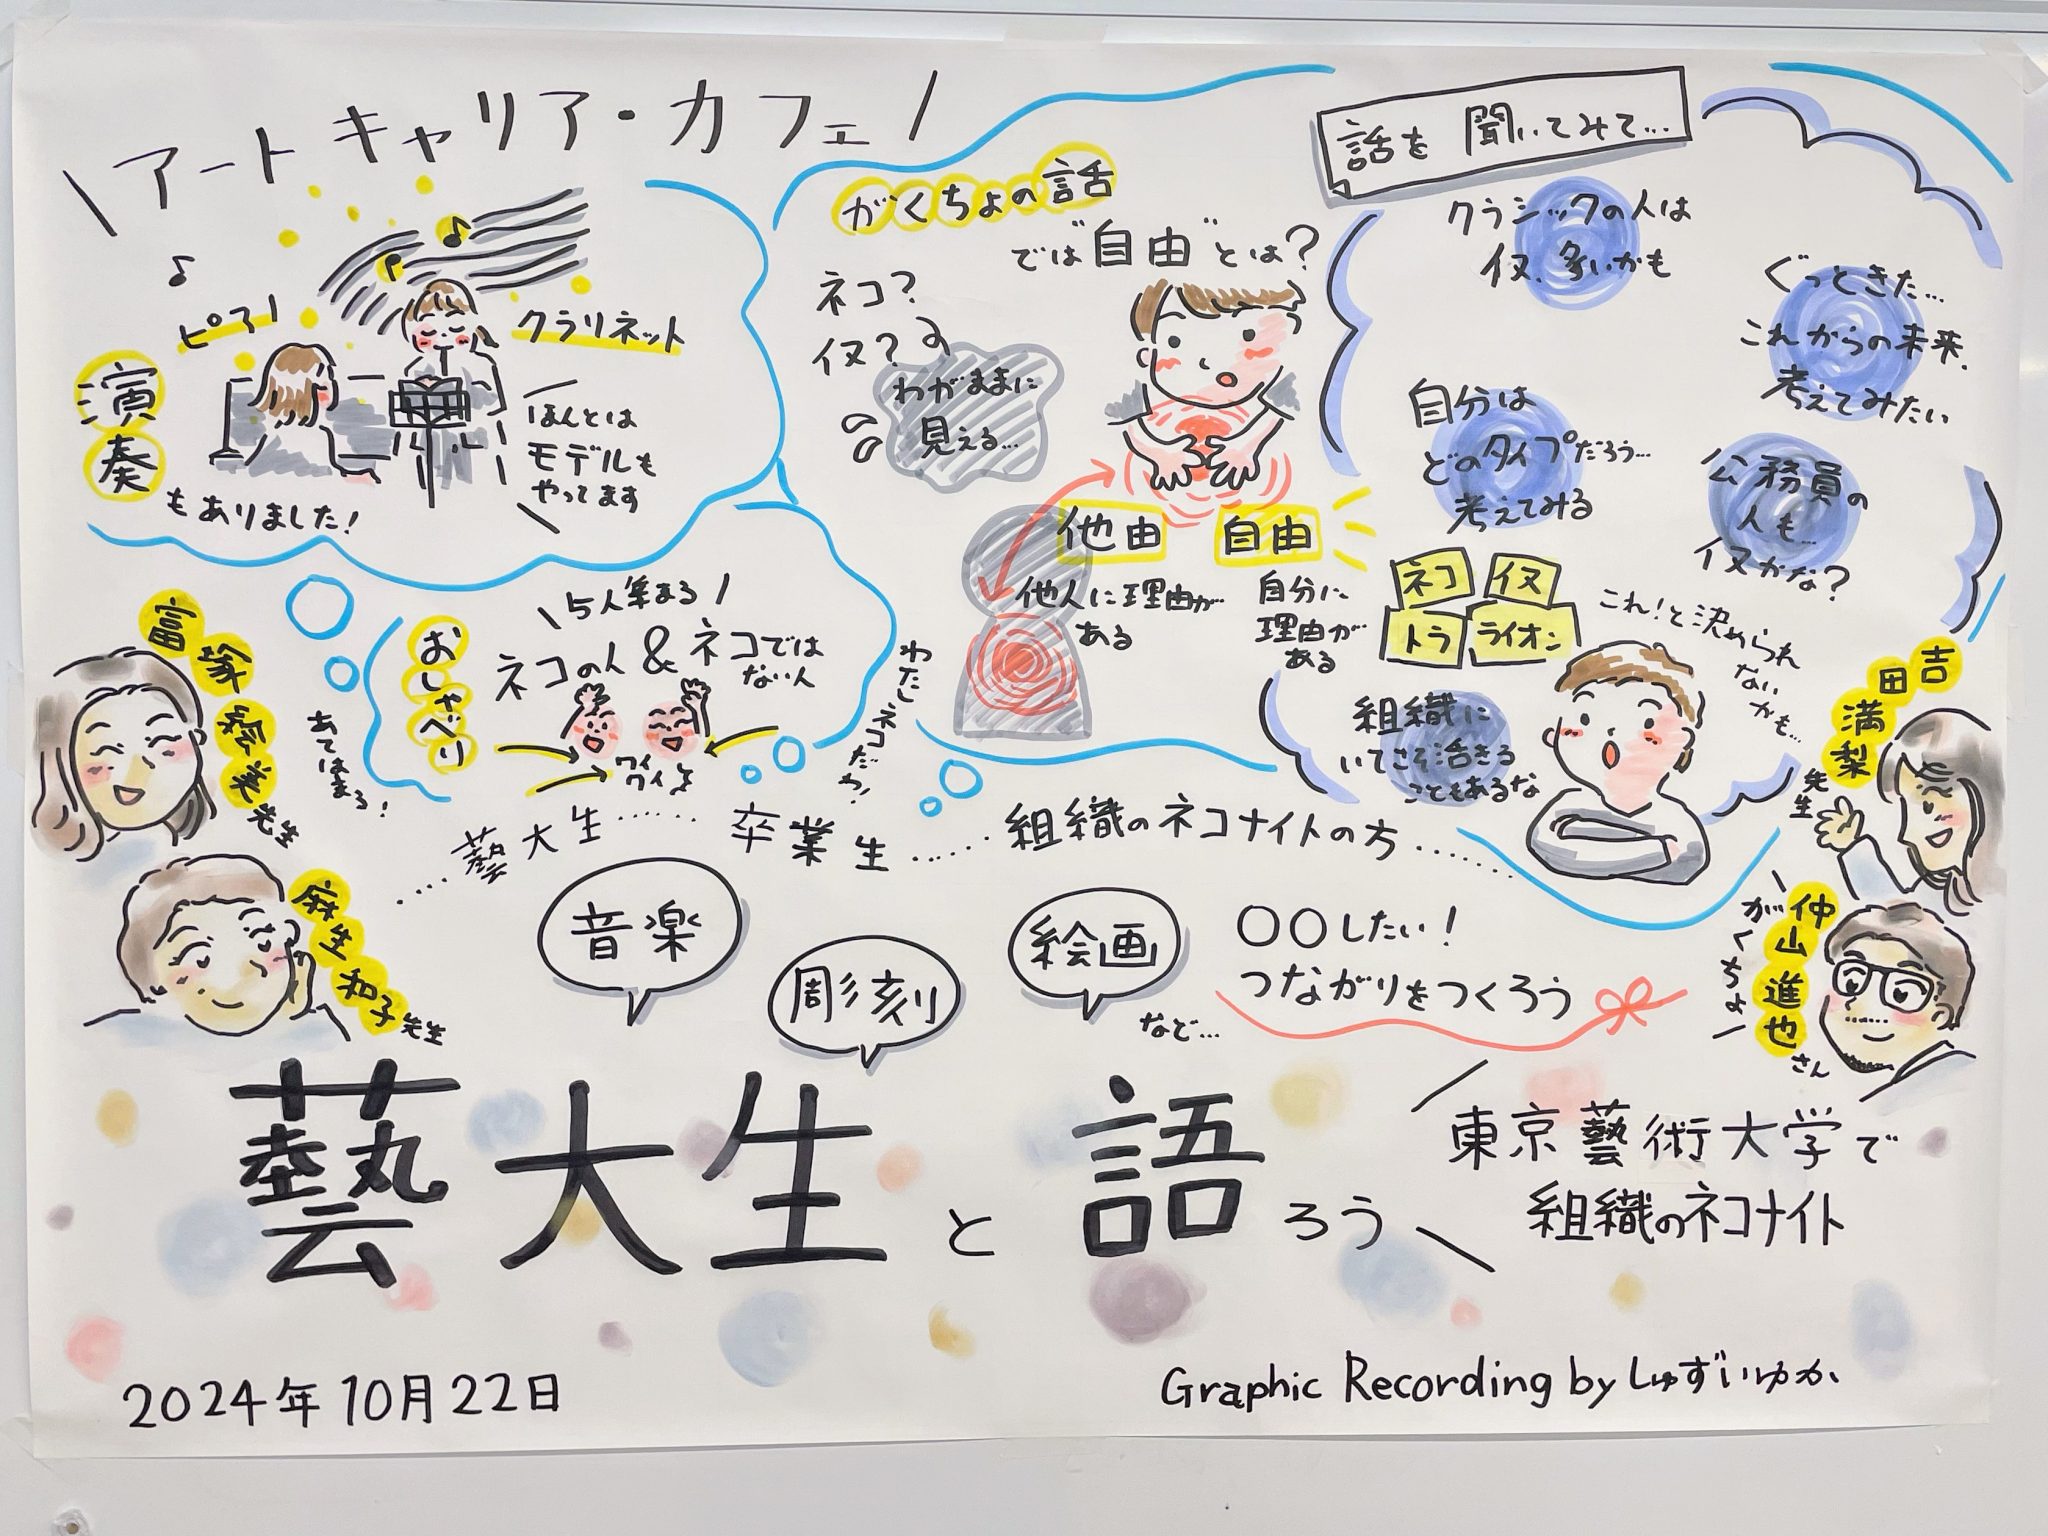 アートキャリア・カフェ
ピアノ
クラリネット
演奏
もありました!
ほんとは
モデルも
やってます
がくちょの話
では"自由"とは?
ネコ?
イヌ?
わがままに
見える…
他由
自由
他人に理由が
ある
自分に
理由が
ある
話を聞いてみて…
クラシックの人は
イヌ、多いかも
ぐっときた…
これからの未来、
考えてみたい
自分は
どのタイプだろう…
考えてみる
公務員の
人も…
イヌかな?
ネコ
イヌ
トラ
ライオン
これ!と決められ
ない
かも…
組織に
いてこそ活きる
こともあるな
おしゃべり
5人集まる
ネコの人 & ネコでは
ない人
ワイ
ワイ
わたしネコだわ!
あてはまる!
富塚絵美先生
麻生和子先生
吉田満梨先生
仲山進也さん
がくちょー
…藝大生……卒業生……組織のネコナイトの方……
音楽
彫刻
絵画
など…
〇〇したい!
つながりをつくろう
藝大生と語ろう
東京藝術大学で
組織のネコナイト
2024年10月22日
Graphic Recording by しゅずいゆか